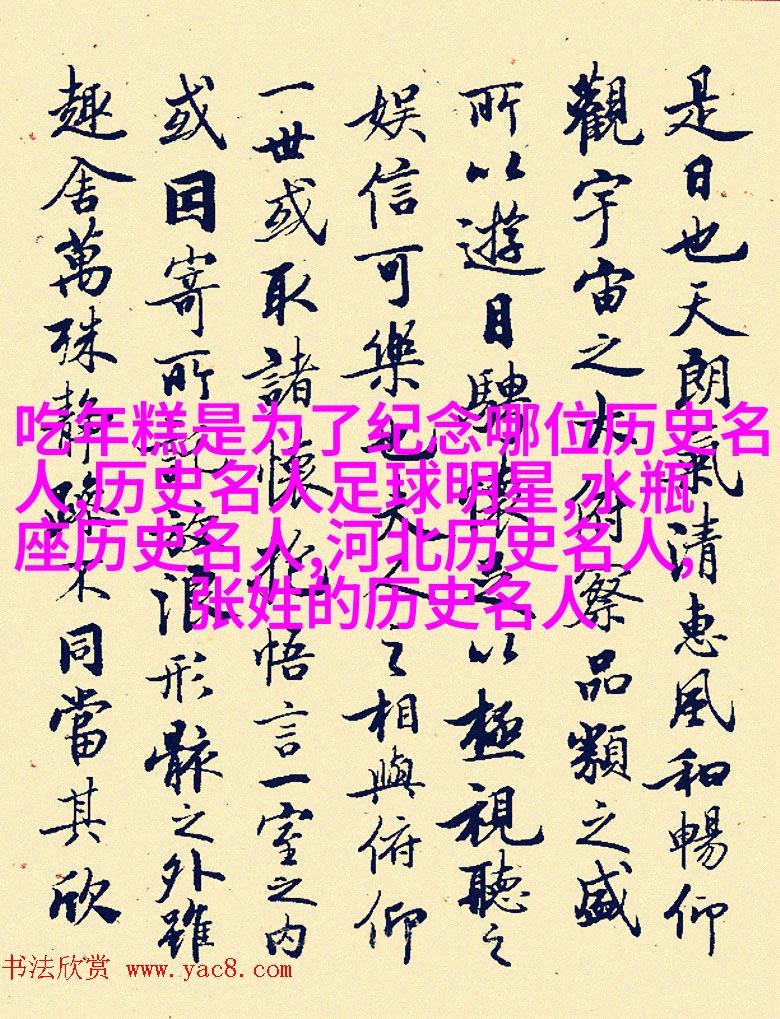 是日也天朗氣清惠風和暢仰
觀宇宙之大俯察品類之盛
所以遊目騁懷足以極視聽之
娱信可樂也夫人之相與俯仰
一世或取諸懷抱悟言一室之内
或因寄所託放浪形骸之外雖
趣舍萬殊静躁不同當其欣
吃年糕是为了纪念哪位历史名
人,历史名人足球明星,水瓶
座历史名人,河北历史名人,
张姓的历史名人
书法欣赏 www.yac8.com